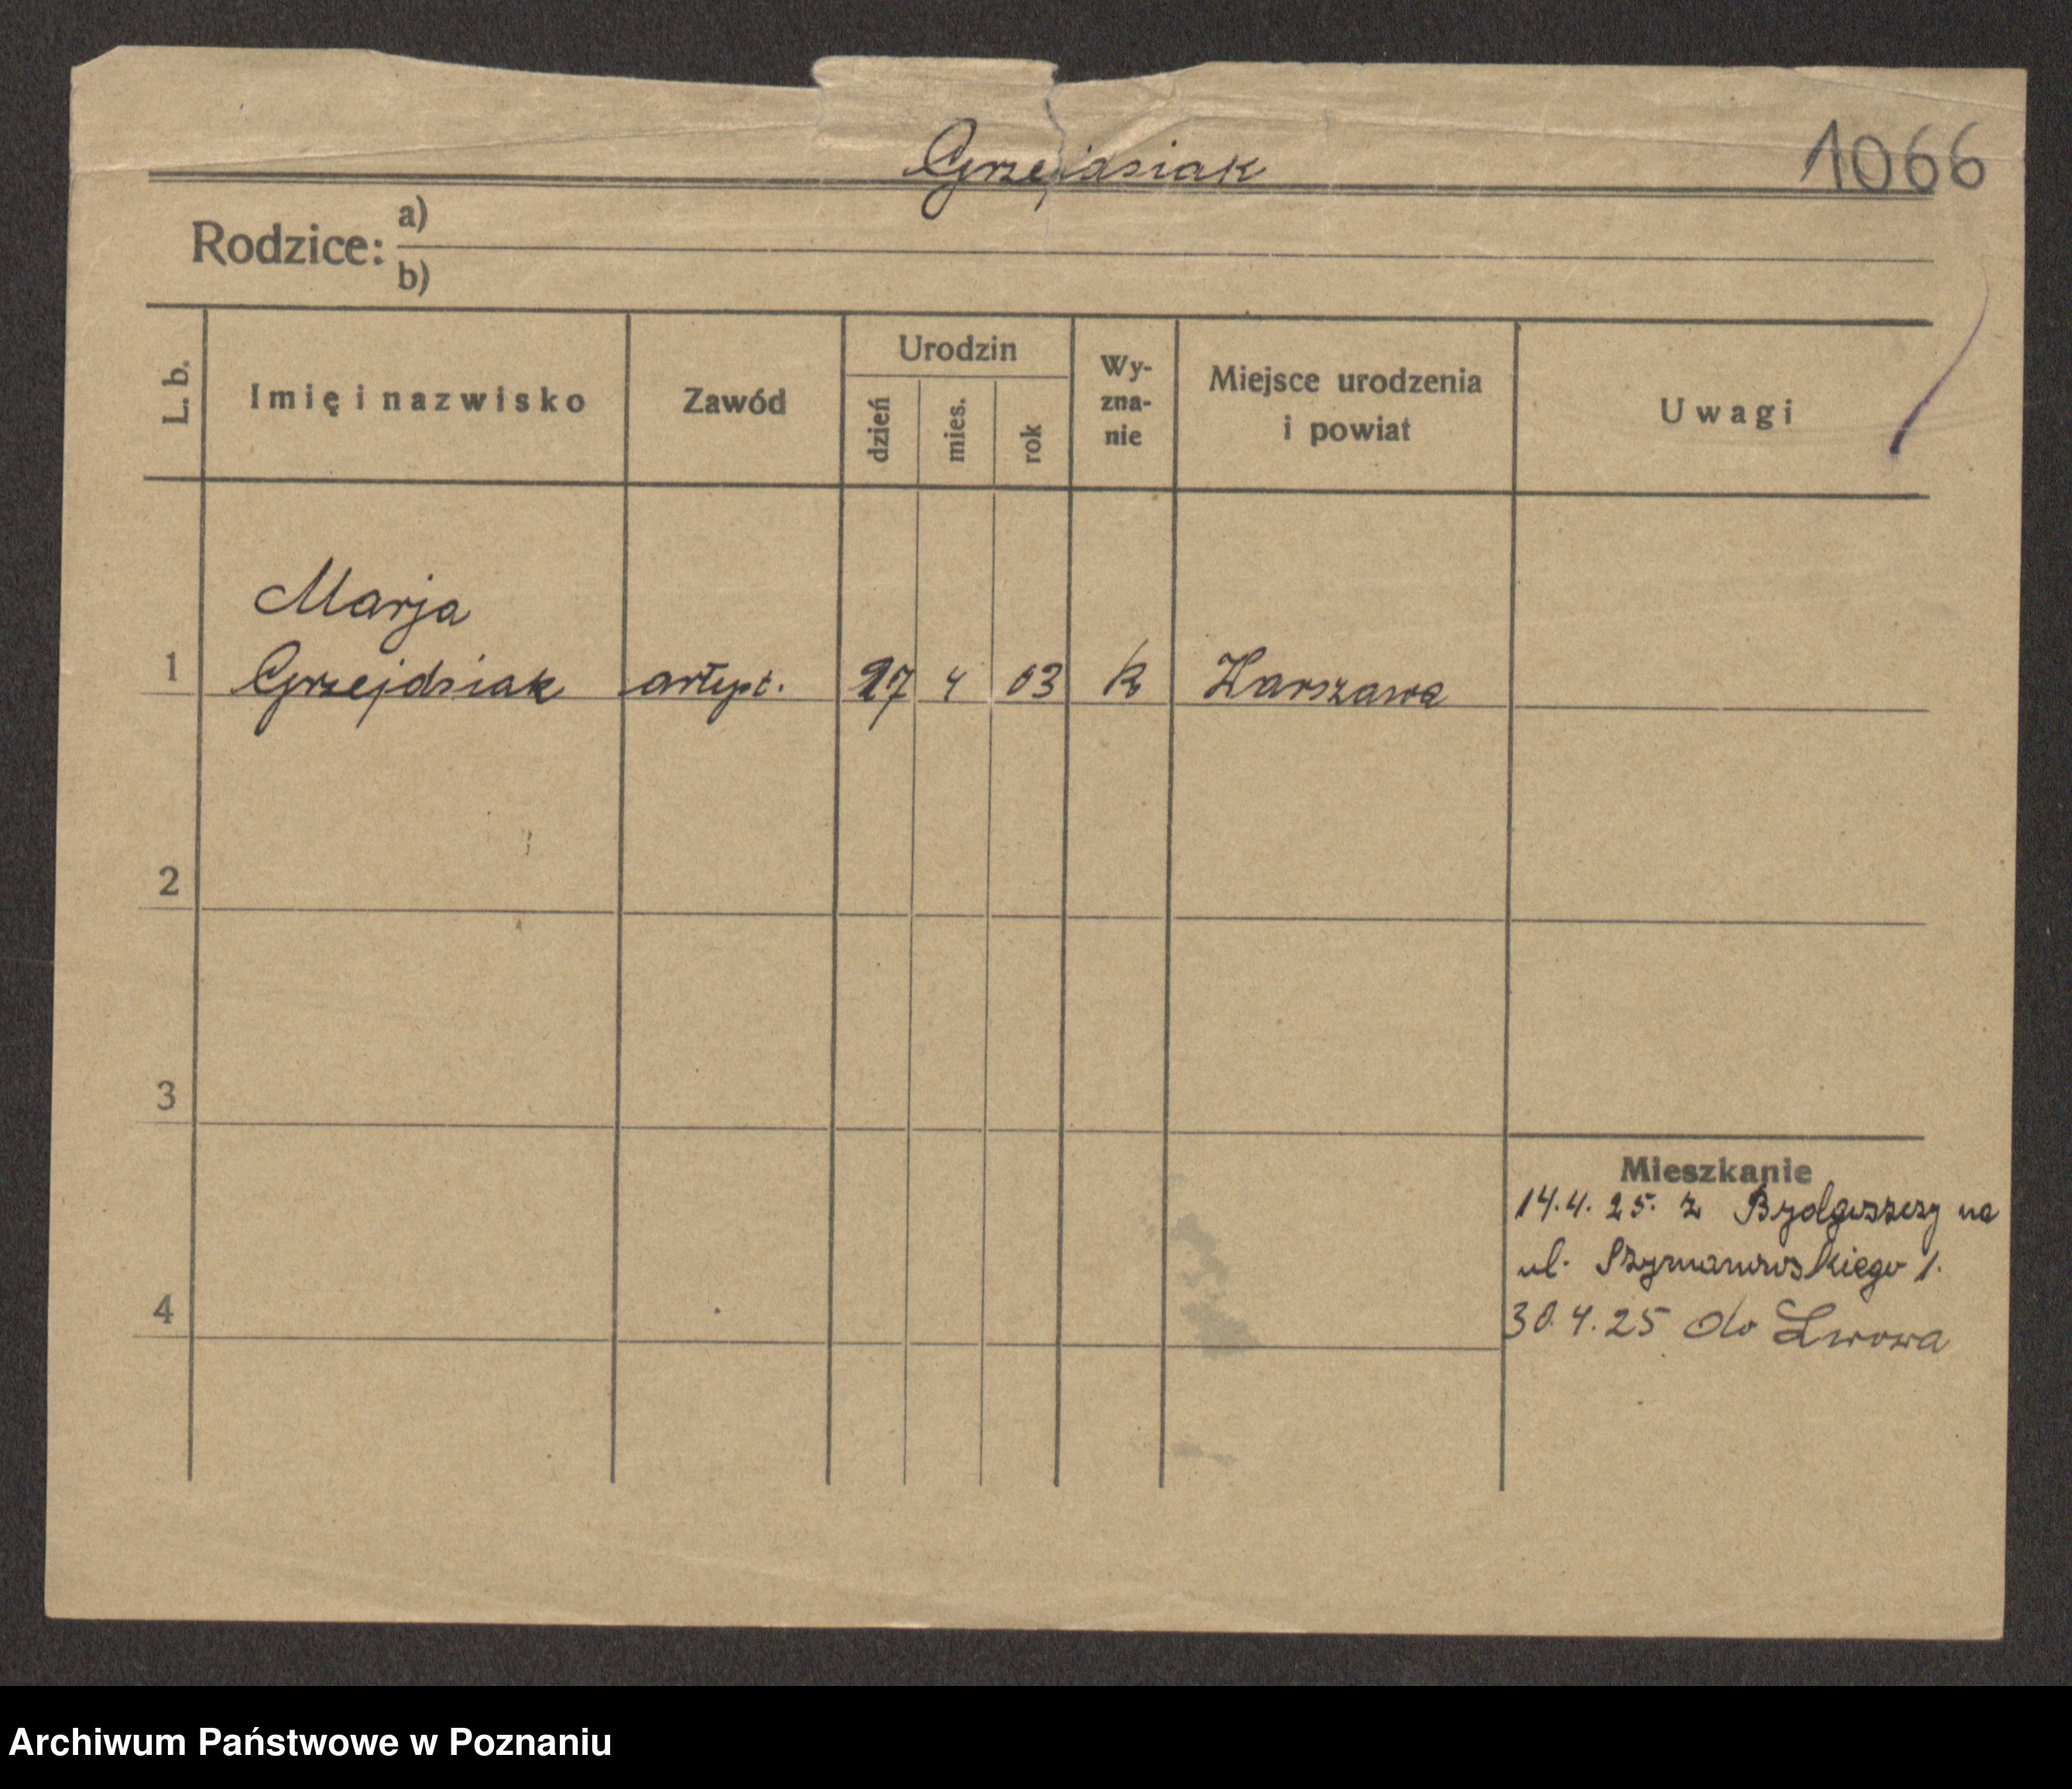 Grzejdsiak
1066
Rodzice:
a)
b)
L. b.
Imię i nazwisko
Zawód
Urodzin
dzień
mies.
rok
Wy-
zna-
nie
Miejsce urodzenia
i powiat
Uwagi
Marja
1 Grzejdsiak artyst. 27 4 03 k Warszawa
2
3
Mieszkanie
14.4.25. z Bydgoszczy na
ul. Szymanowskiego 1.
4
30.4.25 do Lwowa
Archiwum Państwowe w Poznaniu